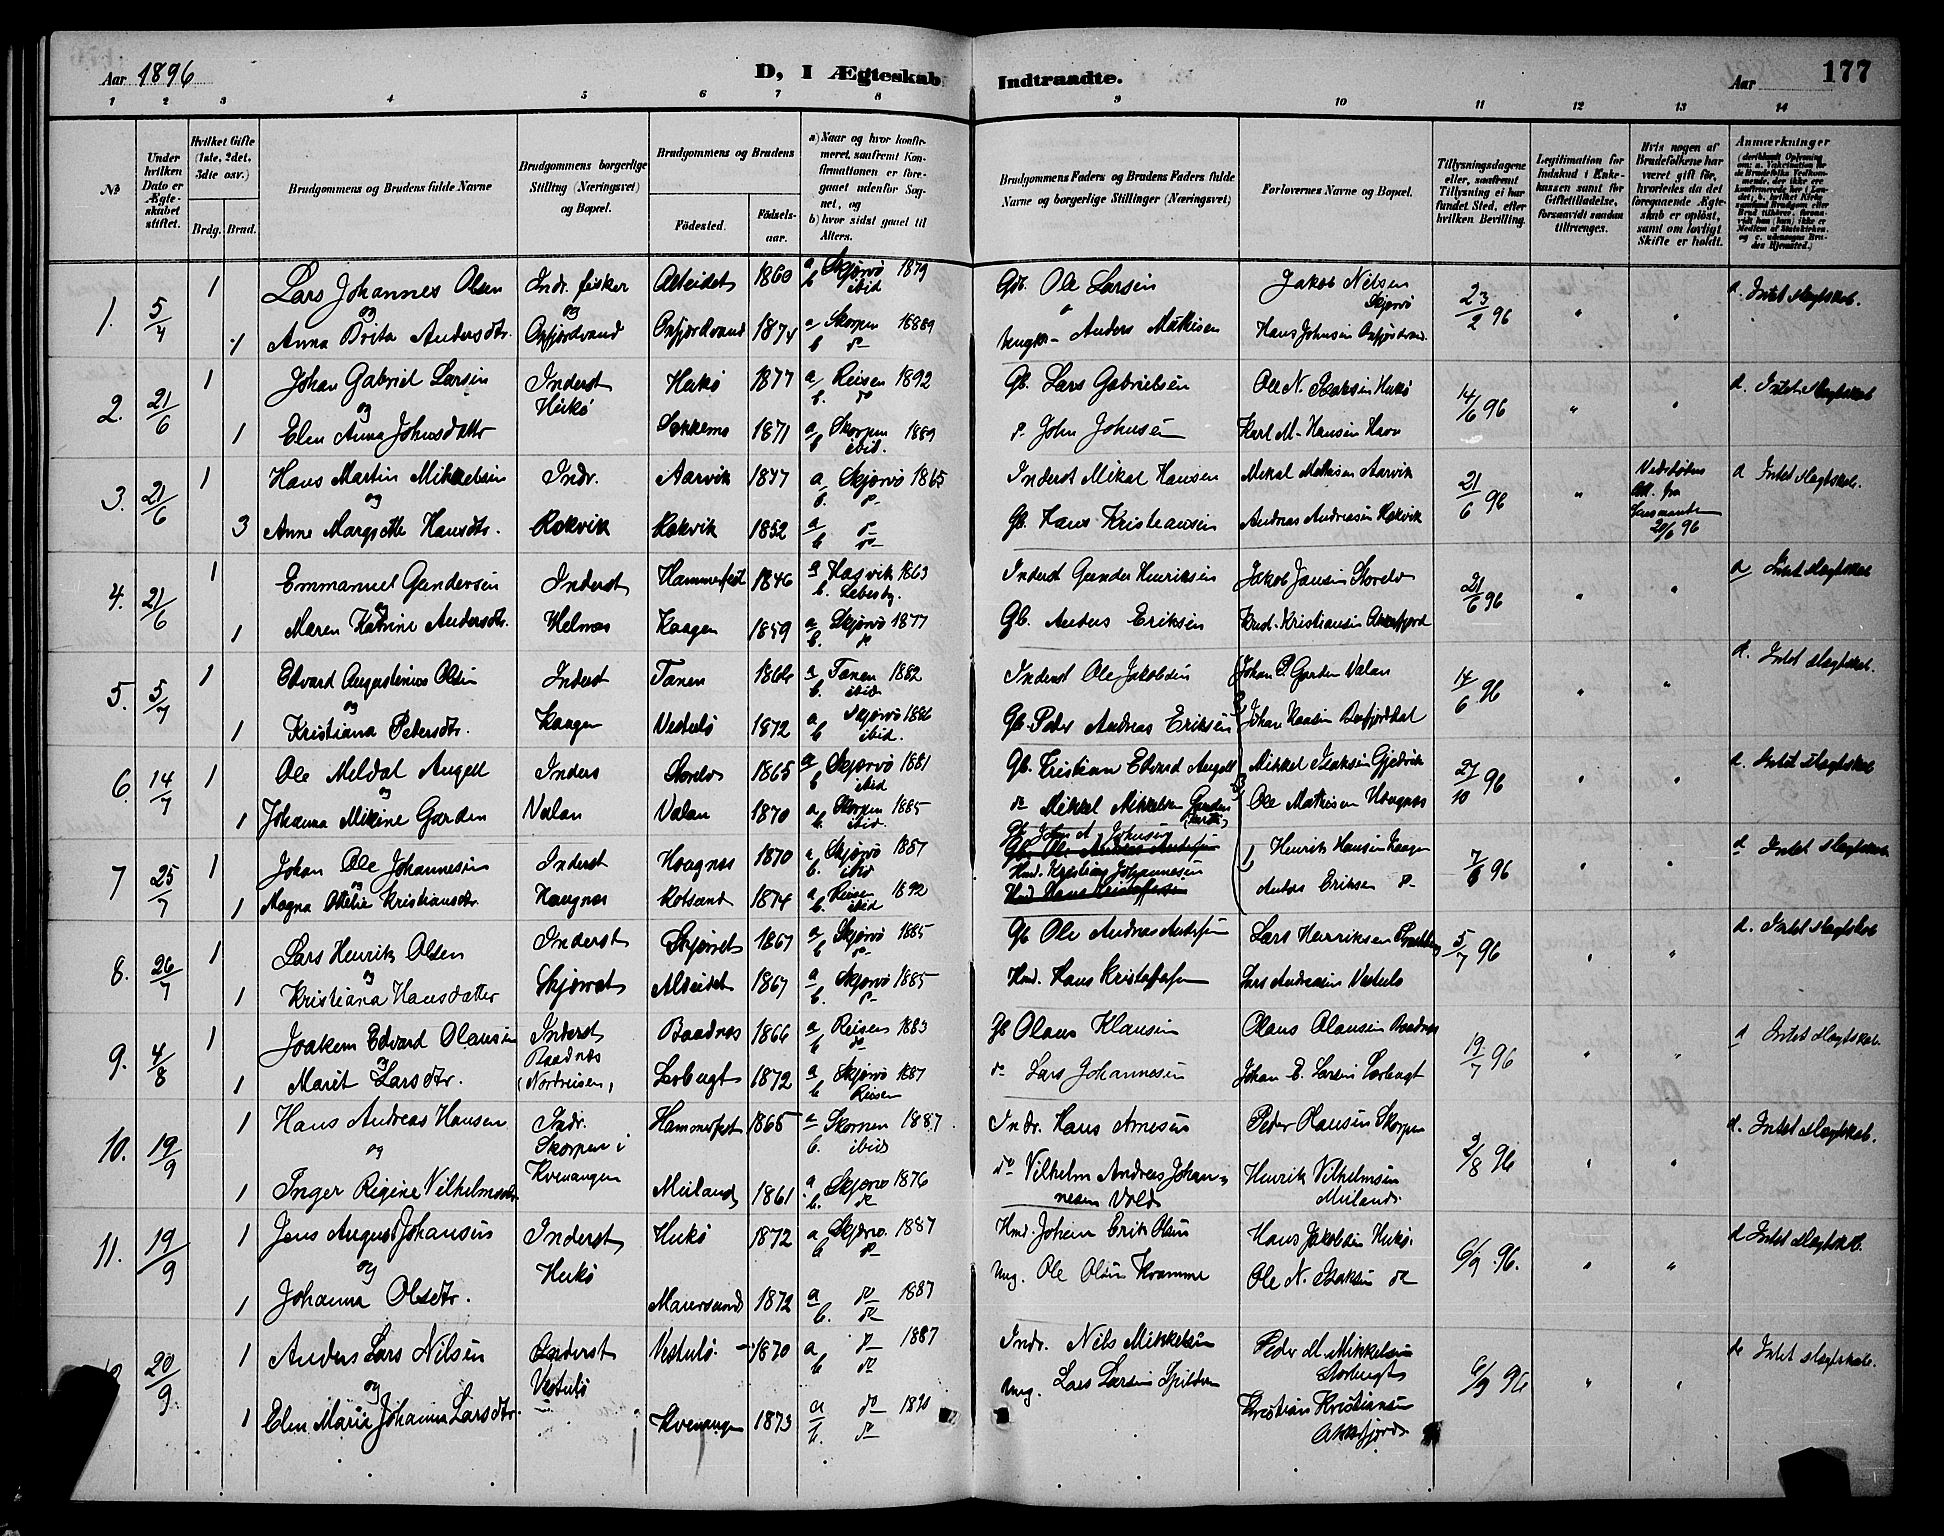 Aar 1896
D, I Ægteskab
Indtraadte.
Aar
177
1 2 3 4 5 6 7 8 9 10 11 12 13 14
№
Under hvilken Dato er Ægteskabet stiftet.
Hvilket Gifte (1ste, 2det, 3die osv.)
Brdg. Brud.
Brudgommens og Brudens fulde Navne
Brudgommens borgerlige Stilling (Næringsvei) og Bopæl.
Brudgommens og Brudens
Fødested.
Fødselsaar.
a) Naar og hvor konfirmeret, saafremt Konfirmationen er foregaaet udenfor Sognet, og
b) hvor sidst gaaet til Alters.
Brudgommens Faders og Brudens Faders fulde Navne og borgerlige Stillinger (Næringsvei)
Forlovernes Navne og Bopæl.
Tillysningsdagene eller, saafremt Tillysning ei har fundet Sted, efter hvilken Bevilling.
Legitimation for Indskud i Enkekassen samt for Giftetilladelse, forsaavidt saadan tiltrænges.
Hvis nogen af Brudefolkene har været gift før, hvorledes da det foregaaende Ægteskab er opløst, samt om lovligt Skifte er holdt.
Anmærkninger
1. 5/4 1 Lars Johannes Olsen Indr. fisker Alteidet 1860 a Skjervø 1879 b ibid Gdb. Ole Larsen Jakob Nilsen Skjervø 23/2 96 " " d. Intet Slægtskab.
og
1 Anna Brita Andersdtr. Oxfjordvand Oxfjordvand 1874 a Skorpen 1889 b do Ungkr. Anders Mathisen Hans Johnsen Oxfjordvand.
2. 21/6 1 Johan Gabriel Larsen Inderst Heikø Hukø 1877 a Reisen 1892 b. do Gb. Lars Gabrielsen Ole N. Isaksen Hukø 14/6 96 " " d. Intet Slægtskab
og
1 Elen Anna Johnsdatter Søkkemo 1871 a Skorpen 1889 b ibid. do John Johnsen Karl M. Hansen Havn
3. 21/6 1 Hans Martin Mikkelsen Indr. Aarvik 1847 a Skjervø 1865 b. do Inderst Mikal Hansen Mikal Mathisen Aarvik 21/6 96 " 20/6 96 d Intet Slægtskab.
og
3 Anne Margrethe Hansdtr. Rokvik Rokvik 1852 a do b do Gb. Hans Kristiansen Andreas Andreasen Rokvik
4. 21/6 1 Emmanuel Gundersen Inderst Hammerfest 1846 a Hasvik 1863 b. Lebesby. Inderst Gunder Henriksen Jakob Jansen Storelv 21/6 96 " " d Intet Slægtskab
og
1 Maren Katrine Andersdtr. Helnes Kaagen 1859 a Skjervø 1877 b. do Gb. Anders Eriksen Knud Kristiansen Akkefjord
5. 5/7 1 Edvard Augustinius Olsen Inderst Tanen 1864 a Tanen 1882 b. ibid. Inderst Ole Jakobsen Johan P. Garden Valan 14/6 96 " " d. Intet Slægtskab.
og
1 Kristiana Petersdtr. Kaagen Vesterlø 1872 a Skjervø 1886 b ibid. Gb. Peder Andreas Eriksen Johan Kaasen Oxfjorddal
6. 14/7 1 Ole Meldal Angell Inders Storelv 1865 a Skjervø 1881 b ibid Gb. Kristian Edvard Angell Mikkel Isaksen Gjedvik 27/10 96 " " d. Intet Slægtskab
og
1 Johanna Mikine Garden Valan Valan 1870 a Skorpen 1885 b. ibid. do Mikkel Mikkelsen Garden Ole Mathisen Haugnes
7 25/7 1 Johan Ole Johannesen Inderst Haugnes 1870 a Skjervø 1887 b. ibid Gb. John A. Johnsen Henrik Hansen Kaagen 7/6 96 " " d Intet Slægtskab
og
1 Magna Ottelie Kristiansdtr. Haugnes Rotsund 1874 a Reisen 1892 b. ibid Hmd. Kristian Johannesen Anders Eriksen do
8. 26/7 1 Lars Henrik Olsen Inderst Skjervet 1867 a Skjervø 1885 b do Gb Ole Andreas Andersen Lars Henriksen 5/7 96 " " d. Intet Slægtskab
og
1 Kristiana Hansdatter Skjervet Alteidet 1867 a Skjervø 1885 b. do Hmd. Hans Kristoffersen Lars Andreasen Vesterlø
9. 4/8 1 Joakem Edvard Olausen Inderst Baadnes (Nordreisen) Baadnes 1866 a Reisen 1883 b do Gb Olaus Klausen Olaus Olausen Baadnes 19/7 96 " " d Intet Slægtskab.
og
1 Marit Larsdtr. Lerbugt 1872 a Skjervø 1887 b Reisen do Lars Johannesen Johan E. Larsen Lerbugt
10. 19/9 1 Hans Andreas Hansen Indr. Skorpen i Kvenangen Hammerfest 1865 a Skorpen 1887. b. ibid Indr. Hans Arnesen Peder Hansen Skorpen 2/8 96 " " d. Intet Slægtskab.
og
1 Inger Rigine Vilhelmsdtr. Meiland 1861 a Skjervø 1876 b. do do Vilhelm Andreas Johannesen Vold Henrik Vilhelmsen Meiland
11. 19/9 1 Jens August Johansen Inderst Hukø 1872 a Skjervø. 1887 b do Hmd. Johan Erik Olsen Hans Jakobsen Hukø. 6/9 96. " " d Intet Slægtskab.
og
1 Johanna Olsdtr. Heikø Maursund 1872 a do 1887 b. do Ung. Ole Olsen Kvamme Ole N. Isaksen do
20/9 1 Anders Lars Nilsen Inderst Vesterlø Vesterlø. 1870 a do 1887 b do Indr. Nils Mikkelsen Peder M. Mikkelsen Storbugt 6/9 96 " " d. Intet Slægtskab.
og
1 Elen Maria Johanna Larsdtr. Kvenangen 1873 a do 1890 b. do Ung. Lars Larsen Spildern Kristian Kristiansen Akkefjord